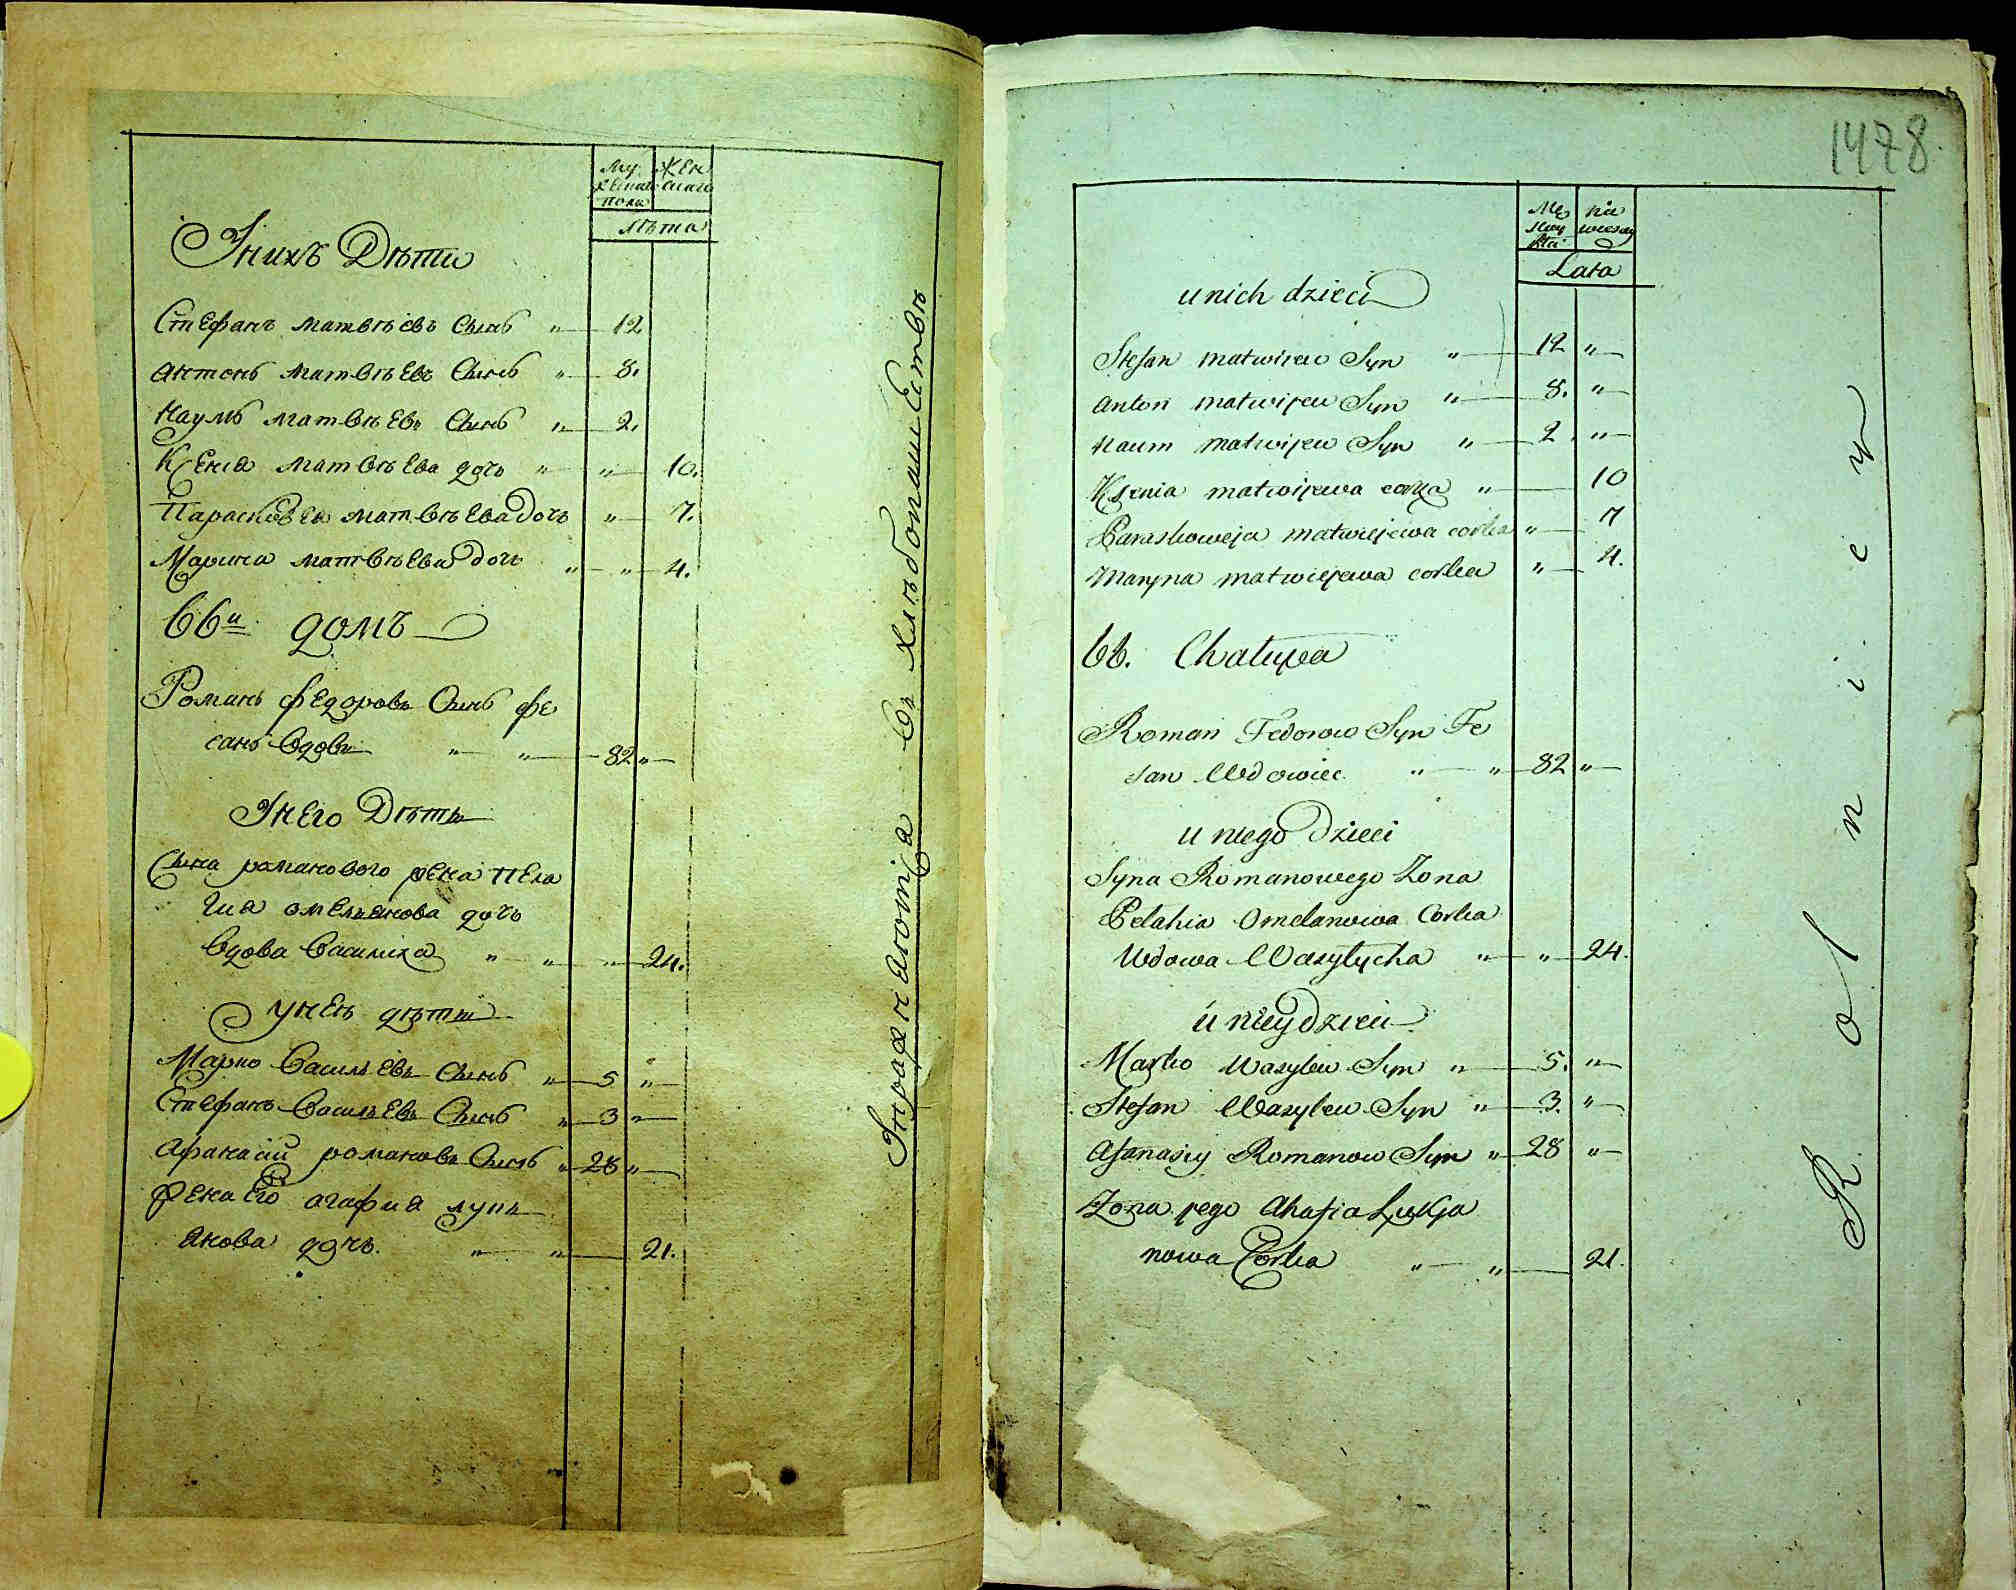 Му
жеска
пола
Жен
скаго
Лѣта
Унихъ Дѣти
Стефанъ матвѣевъ Сынъ " 12
Антонъ матвѣевъ Сынъ " 8.
Наумъ матвѣевъ Сынъ " 2.
Ксенія матвѣева дочь " " 10.
Парасковея матвѣева дочь " 7.
Марина матвѣева дочь " " 4.
66й домъ
Романъ федоровъ Сынъ фе
санъ вдовъ " " 82 "
Унего Дѣти
Сына романового жена пела
гия омельянова дочь
вдова василиха " " " 24.
унеѣ дѣти
Марко васильевъ Сынъ " 5 "
Стефанъ васильевъ Сынъ " 3 "
Афанасий романовъ Сынъ " 28 "
жена Его агафия лукь
янова дочь. " " 21.
Упражняются въ хлѣбопашествѣ
1478
Mę
sky
płci
Lata
u nich dzieci
Stefan matwiiew Syn " 12 "
Anton matwijew Syn " 8. "
Naum matwijew Syn " 2. "
Ksenia matwijewa corka " 10
Paraskoweja matwiejewa corka " 7
Maryna matwiejewa corka " 4.
66. Chałupa
Roman Fedorow Syn Fe
san Wdowiec " " 82 "
u niego dzieci
Syna Romanowego Zona
Pelahia Omelanowa Corka
Wdowa Wasylycha " " 24.
u niey dzieci
Marko Wasylew Syn " 5. "
Stefan Wasylew Syn " 3. "
Afanasiy Romanow Syn " 28 "
Zona jego Ahafia Łukja
nowa Corka " " 21.
Rolniey